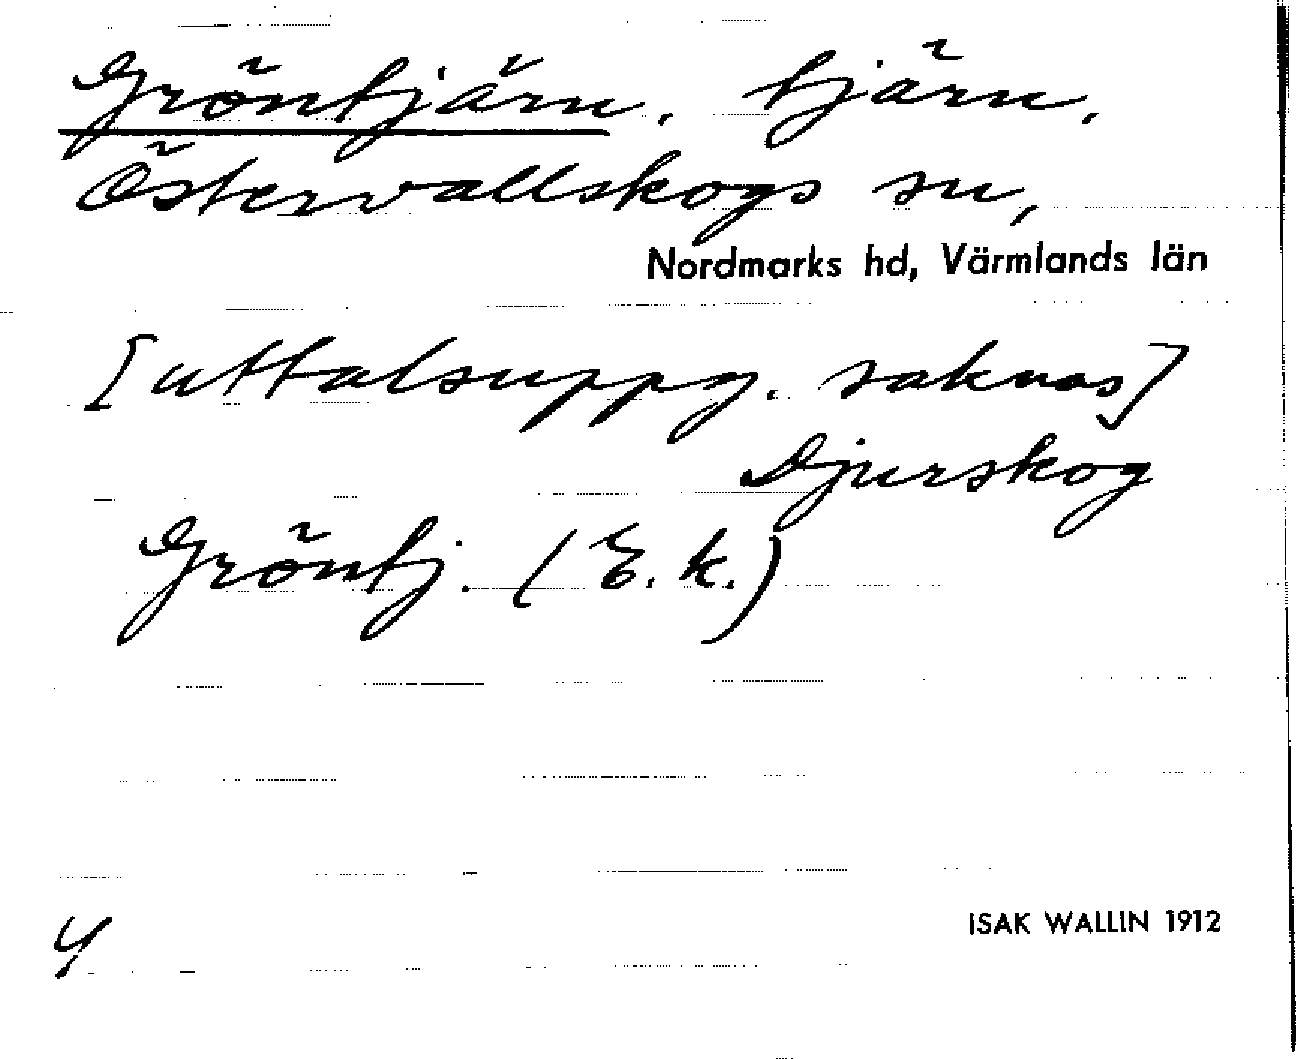 Gröntjärn. tjärn.
Östervallskogs sn,
Nordmarks hd, Värmlands län
[uttalsuppg. saknas]
Djurskog
Gröntj. (E. k.)
ISAK WALLIN 1912
4